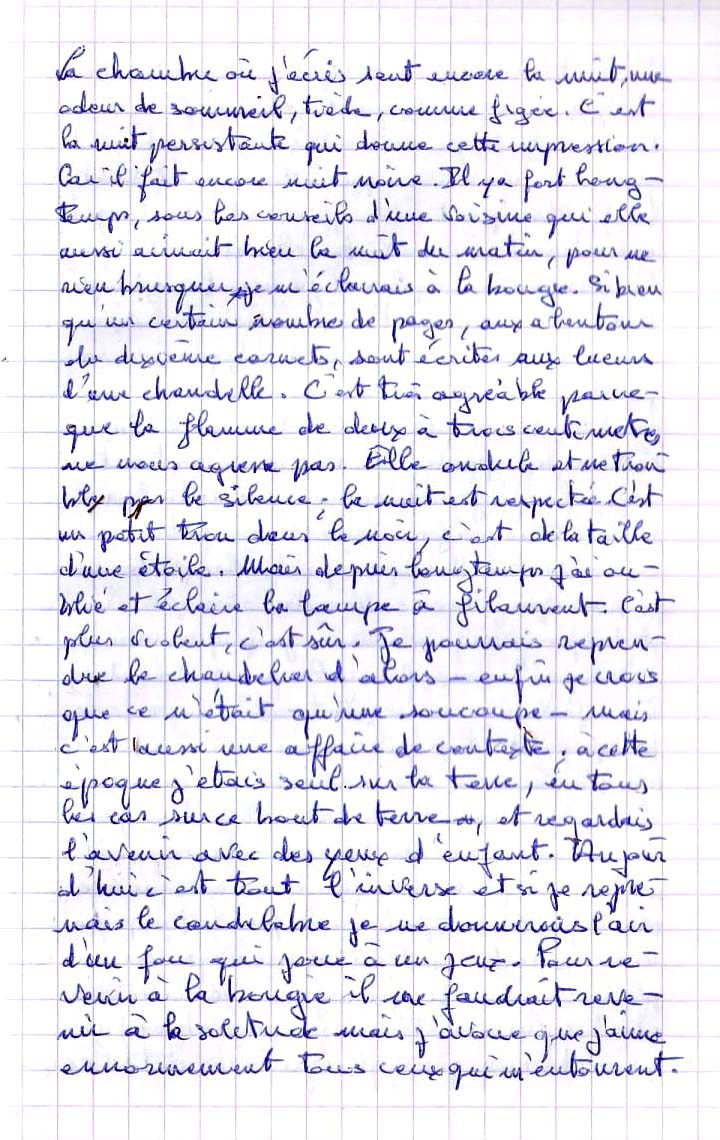 La chambre où j'écris sent encore la nuit, une
odeur de sommeil, tiède, comme figée. C'est
la nuit persistante qui donne cette impression.
Car il fait encore nuit noire. Il y a fort long-
temps, sous les conseils d'une voisine qui elle
aussi aimait bien la nuit du matin, pour ne
rien brusquer, je m'éclairais à la bougie. Si bien
qu'un certain nombre de pages, aux alentour
du dixième carnets, sont écrites aux lueurs
d'une chandelle. C'est très agréable parce-
que la flamme de deux à trois centimetres
ne nous agresse pas. Elle ondule et ne trou
ble pas le silence ; la nuit est respectée. C'est
un petit trou dans le noir, c'est de la taille
d'une étoile. Mais depuis longtemps j'ai ou-
blié et éclaire la lampe à filament. C'est
plus violent, c'est sûr. Je pourrais repren-
dre le chandelier d'alors – enfin je crois
que ce n'était qu'une soucoupe – mais
c'est aussi une affaire de contexte ; à cette
époque j'étais seul sur la terre, en tous
les cas sur ce bout de terre, et regardais
l'avenir avec des yeux d'enfant. Aujour
d'hui c'est tout l'inverse et si je repre-
nais le candelabre je me donnerais l'air
d'un fou qui joue à un jeux. Pour re-
venir à la bougie il me faudrait reve-
nir à la solitude mais j'avoue que j'aime
ennormement tous ceux qui m'entourent.